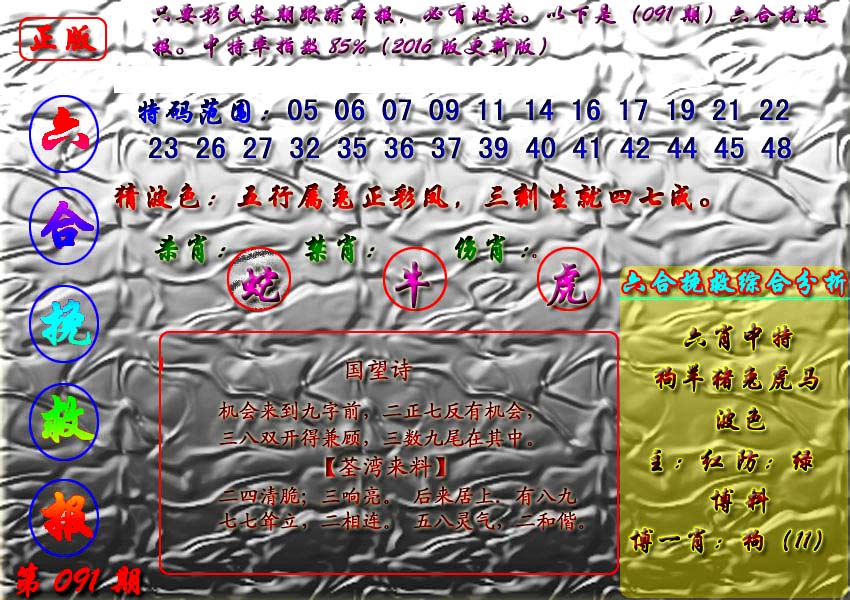 正版
只要彩民长期跟踪本报，必有收获。以下是（091期）六合挽救
报。中特率指数85%（2016版更新版）
六
合
挽
救
报
第091期
特码范围：05 06 07 09 11 14 16 17 19 21 22
23 26 27 32 35 36 37 39 40 41 42 44 45 48
猜波色：五行属兔正彩凤，三刻生就四七成。
杀肖：蛇 禁肖：牛 伤肖：虎
国望诗
机会来到九字前，二正七反有机会，
三八双开得兼顾，三数九尾在其中。
【荃湾来料】
二四清脆；三响亮。 后来居上．有八九
七七耸立，二相连。 五八灵气，二和偕。
六合挽救综合分析
六肖中特
狗羊猪兔虎马
波色
主：红防：绿
博料
博一肖：狗（11）